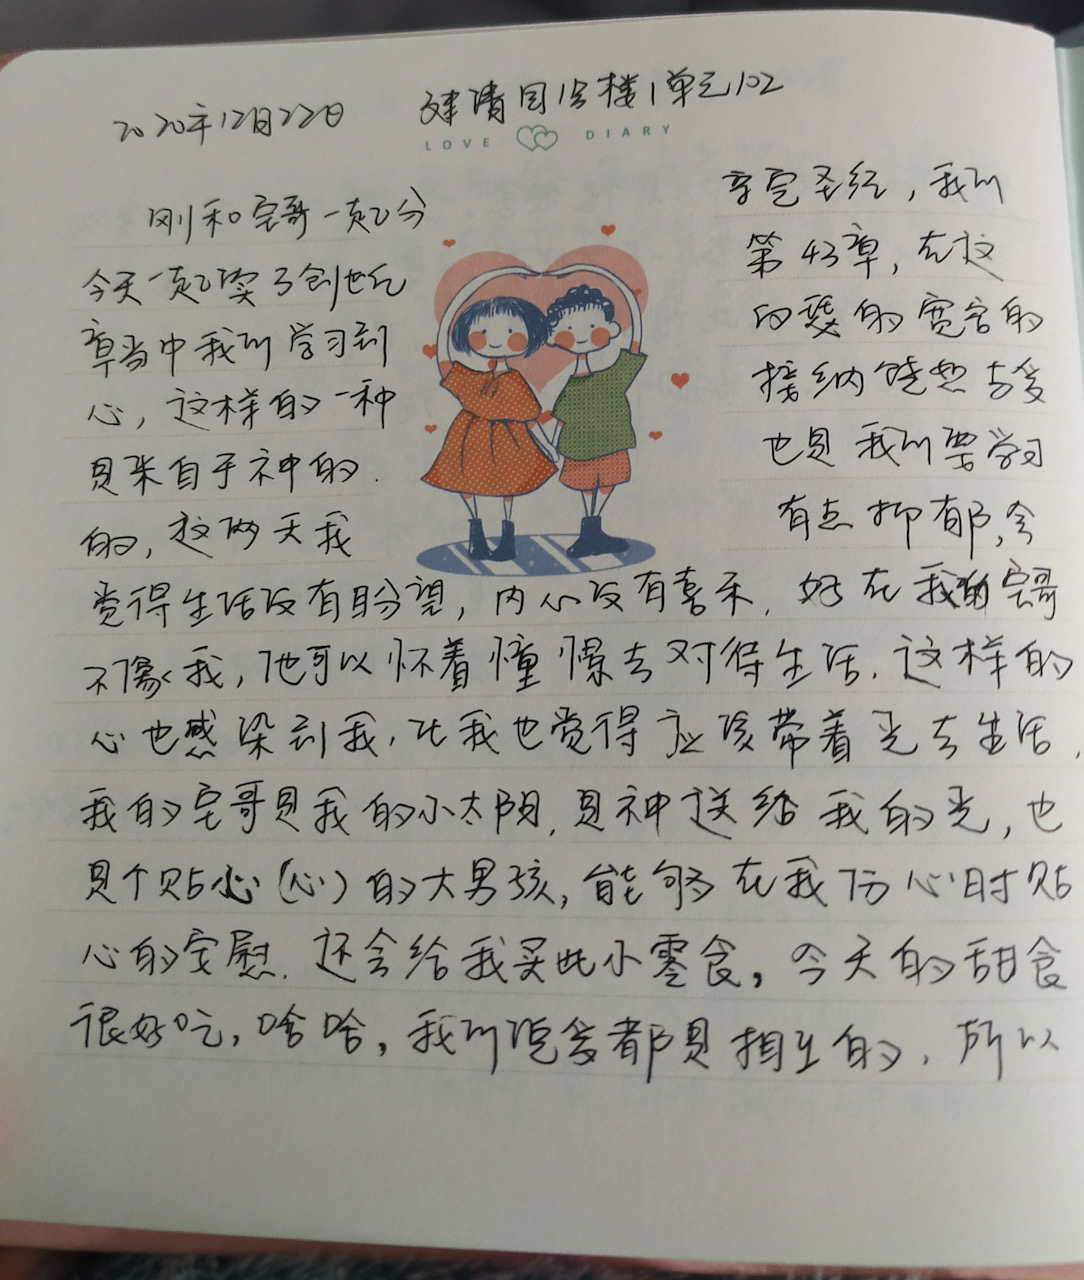 2020年12月22日 建清园15号楼1单元102
LOVE DIARY
刚和宝哥一起分 享完圣经，我们
今天一起读了创世纪 第43章，在这
章当中我们学习到 的宽容的
心，这样的一种 接纳饶恕与爱
是来自于神的. 也是我们要学习
的，这两天我 有点抑郁，会
觉得生活没有盼望，内心没有喜乐，好在我的宝哥
不像我，他可以怀着憧憬去对待生活．这样的
心也感染到我，让我也觉得应该带着光去生活，
我的宝哥是我的小太阳，是神送给我的光，也
是个贴心（心）的大男孩，能够在我伤心时贴
心的安慰．还会给我买些小零食，今天的甜食
很好吃，哈哈，我们说爱都是相互的，所以